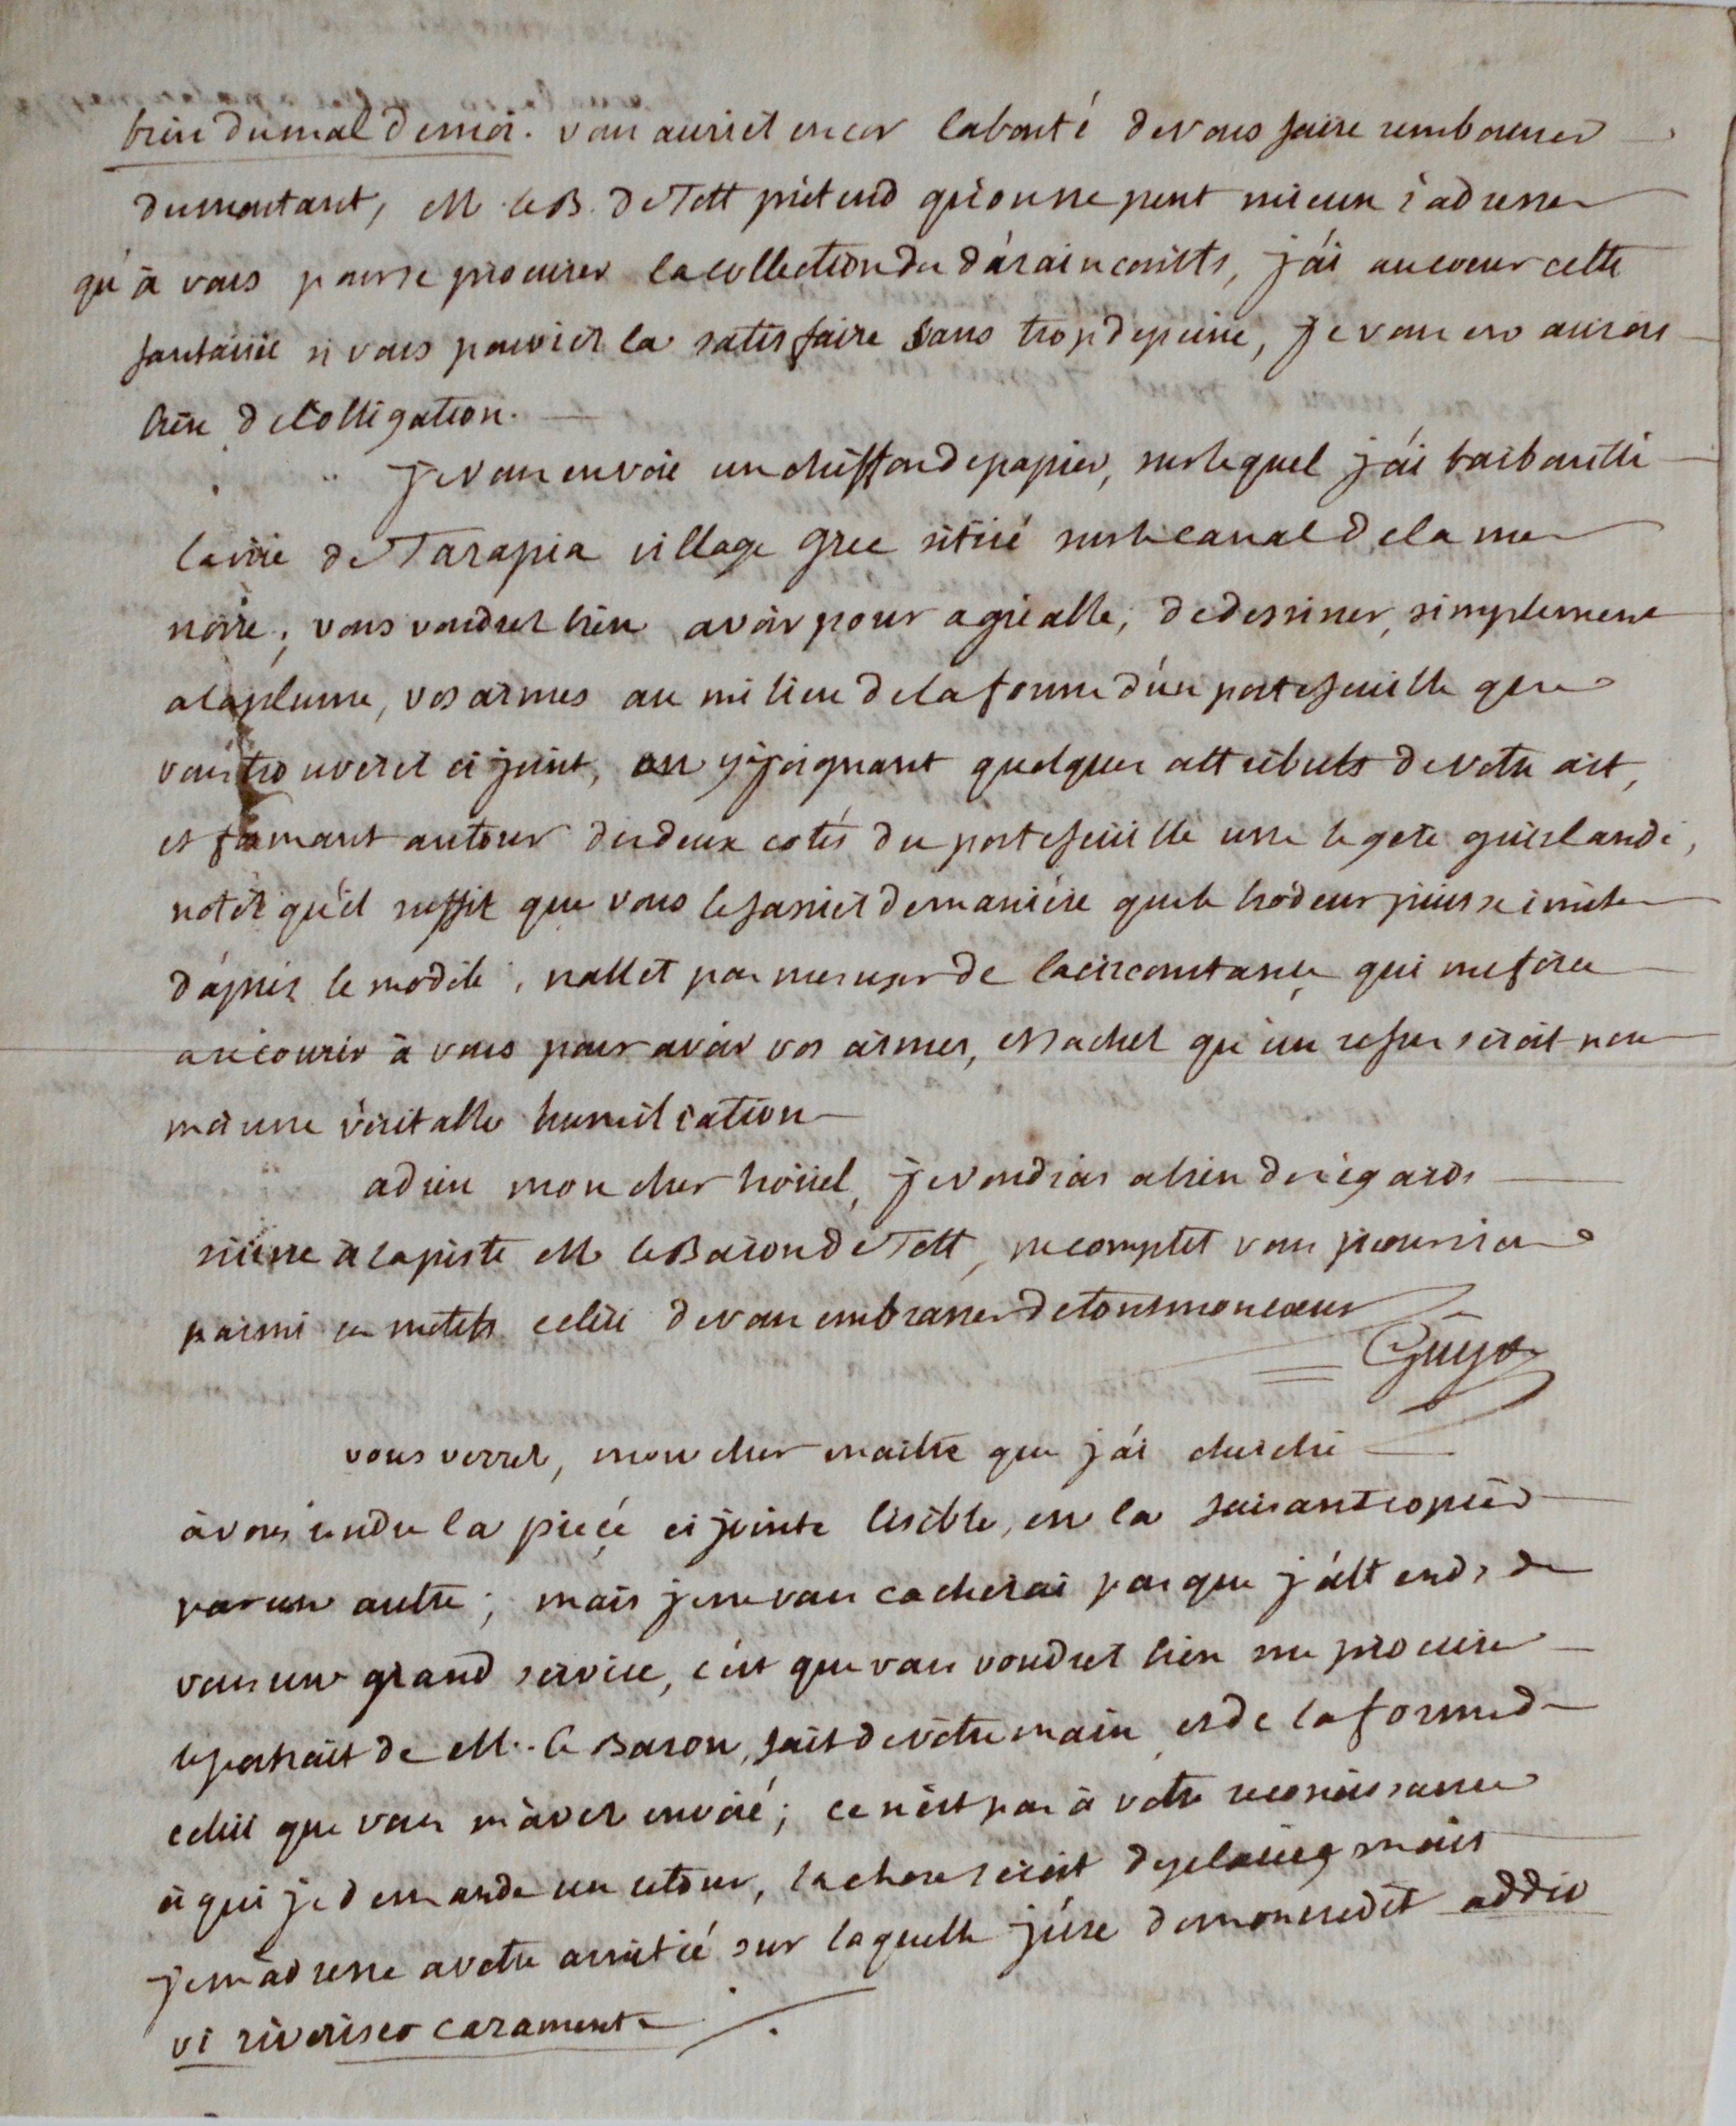 bien du mal de moi. vous auriéz encor la bonté de vous faire rembourser
du montant, M. le B. de Tott prétend qu'on ne peut mieux s'adresser
qu'à vous pour se procurer la collection du d'araincourts, j'ai au coeur cette
fantaisie si vous pouviéz la satisfaire sans trop de peine, je vous en aurois
bien de l'obligation.
je vous envoie un chiffon de papier, sur lequel j'ai barbouillé
la vüe de Tarapia village grec sitüé sur le canal de la mer
noire; vous voudrez bien avoir pour agréable, de dessiner, simplement
a la plume, vos armes au milieu de la forme d'un portefeuille que
vous trouverez ci joint, en y joignant quelques attributs de votre art,
et formant autour des deux cotés du portefeuille une legere guirlande,
notéz qu'il suffit que vous le fassiéz de maniére que le brodeur puisse imiter
d'aprés le modéle, n'alléz pas me user de la circonstance qui me force
a recourir à vous pour avoir vos armes, et sachez qu'un refus seroit pour
moi une véritable humiliation
adieu mon cher hoüel, je voudrois a bien des égards
suivre à la piste M. le Baron de Tott, ne comptéz vous pour rien
parmi ces motifs celui de vous embrasser de tout mon coeur
Guys
vous verrez, mon cher maitre que j'ai cherché
à vous rendre la piéce ci jointe lisible, en la faisant copier
par un autre; mais je ne vous cacherai pas que j'attends de
vous un grand service, c'est que vous voudrez bien me procurer
le portrait de M. le Baron, fait de votre main et de la forme de
celui que vous m'avez envoié; ce n'est pas à votre reconnoissance
à qui je demande un retour, la chose seroit déplacée mais
je m'adresse a votre amitié sur laquelle j'use de mon credit addio
vi riverisco caramente